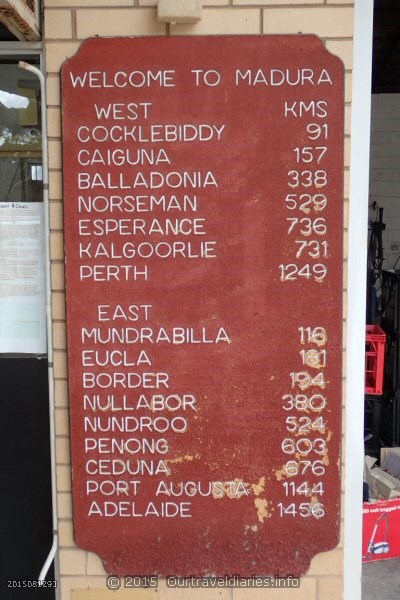 WELCOME TO MADURA
WEST KMS
COCKLEBIDDY 91
CAIGUNA 157
BALLADONIA 338
NORSEMAN 529
ESPERANCE 736
KALGOORLIE 731
PERTH 1249
EAST
MUNDRABILLA 116
EUCLA 181
BORDER 194
NULLABOR 380
NUNDROO 524
PENONG 603
CEDUNA 676
PORT AUGUSTA 1144
ADELAIDE 1456
© 2015 Ourtraveldiaries.info